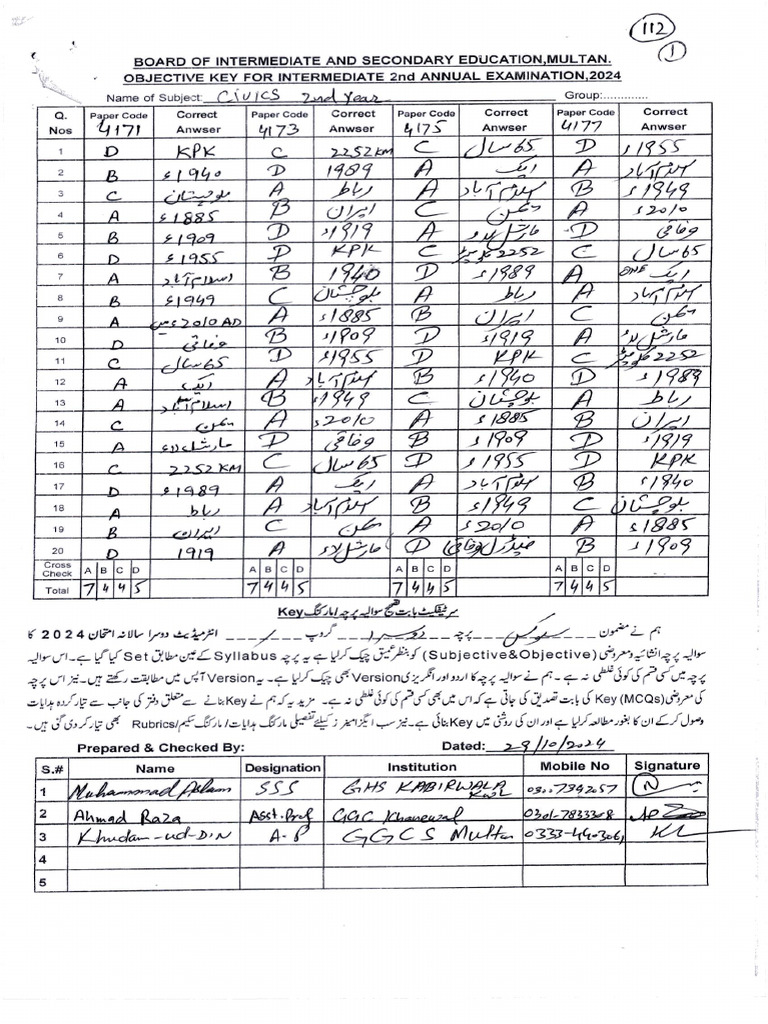 112
1
BOARD OF INTERMEDIATE AND SECONDARY EDUCATION,MULTAN.
OBJECTIVE KEY FOR INTERMEDIATE 2nd ANNUAL EXAMINATION,2024
Name of Subject: CIVICS 2nd Year Group:............
Q. Nos Paper Code 4171 Correct Anwser Paper Code 4173 Correct Anwser Paper Code 4175 Correct Anwser Paper Code 4177 Correct Anwser
1 D KPK C 2252KM C 65 سال D 1955ء
2 B 1940ء D 1989 A ایک A اسلام آباد
3 C بلوچستان A رباط A اسلام آباد B 1949ء
4 A 1885ء B ایران C A 2010ء
5 B 1909ء D 1919ء A مارشل لاء D وفاقی
6 D 1955ء D KPK C 2252 کلومیٹر C 65 سال
7 A اسلام آباد B 1940 D 1989ء A ONE ایک
8 B 1949ء C بلوچستان A رباط A اسلام آباد
9 A 2010 AD ء میں A 1885ء B ایران C
10 D وفاقی B 1909ء D 1919ء A مارشل لاء
11 C 65 سال D 1955ء D KPK C 2252 کلومیٹر
12 A ایک A اسلام آباد B 1940ء D 1989ء
13 A اسلام آباد B 1949ء C بلوچستان A رباط
14 C A 2010ء A 1885ء B ایران
15 A مارشل لاء D وفاقی B 1909ء D 1919ء
16 C 2252 KM C 65 سال D 1955ء D KPK
17 D 1989ء A ایک A اسلام آباد B 1940ء
18 A رباط A اسلام آباد B 1949ء C بلوچستان
19 B ایران C A 2010ء A 1885ء
20 D 1919 A مارشل لاء D فیڈرل (وفاقی) B 1909ء
Cross Check A B C D A B C D A B C D A B C D
Total 7 4 4 5 7 4 4 5 7 4 4 5 7 4 4 5
سرٹیفکیٹ بابت تصحیح سوالیہ پرچہ / مارکنگ Key
ہم نے مضمون سوکس پرچہ گروپ انٹرمیڈیٹ دوسرا سالانہ امتحان 2024 کا
سوالیہ پرچہ انشائیہ ومعروضی (Subjective&Objective) کو بنظر عمیق چیک کرلیا ہے یہ پرچہ Syllabus کے عین مطابق Set کیا گیا ہے۔ اس سوالیہ
پرچہ میں کسی قسم کی کوئی غلطی نہ ہے۔ ہم نے سوالیہ پرچہ کا اردو اور انگریزی Version بھی چیک کرلیا ہے۔ یہ Version آپس میں مطابقت رکھتے ہیں۔ نیز اس پرچہ
کی معروضی (MCQs) Key کی بابت تصدیق کی جاتی ہے کہ اس میں بھی کسی قسم کی کوئی غلطی نہ ہے۔ مزید یہ کہ ہم نے Key بنانے سے متعلق دفتر کی جانب سے تیار کردہ ہدایات
وصول کرکے ان کا بغور مطالعہ کرلیا ہے اور ان کی روشنی میں Key بنائی ہے۔ نیز سب ایگزامینرز کیلئے تفصیلی مارکنگ ہدایات / مارکنگ سکیم /Rubrics بھی تیار کر دی گئی ہیں۔
Prepared & Checked By: Dated: 29/10/2024
S.# Name Designation Institution Mobile No Signature
1 Muhammad Aslam SSS GHS KABIRWALA
2 Ahmad Raza Asst. Prof GGC Khanewal 0301-7833308
3 Khudam-ud-Din A.P GGCS Multan
4
5